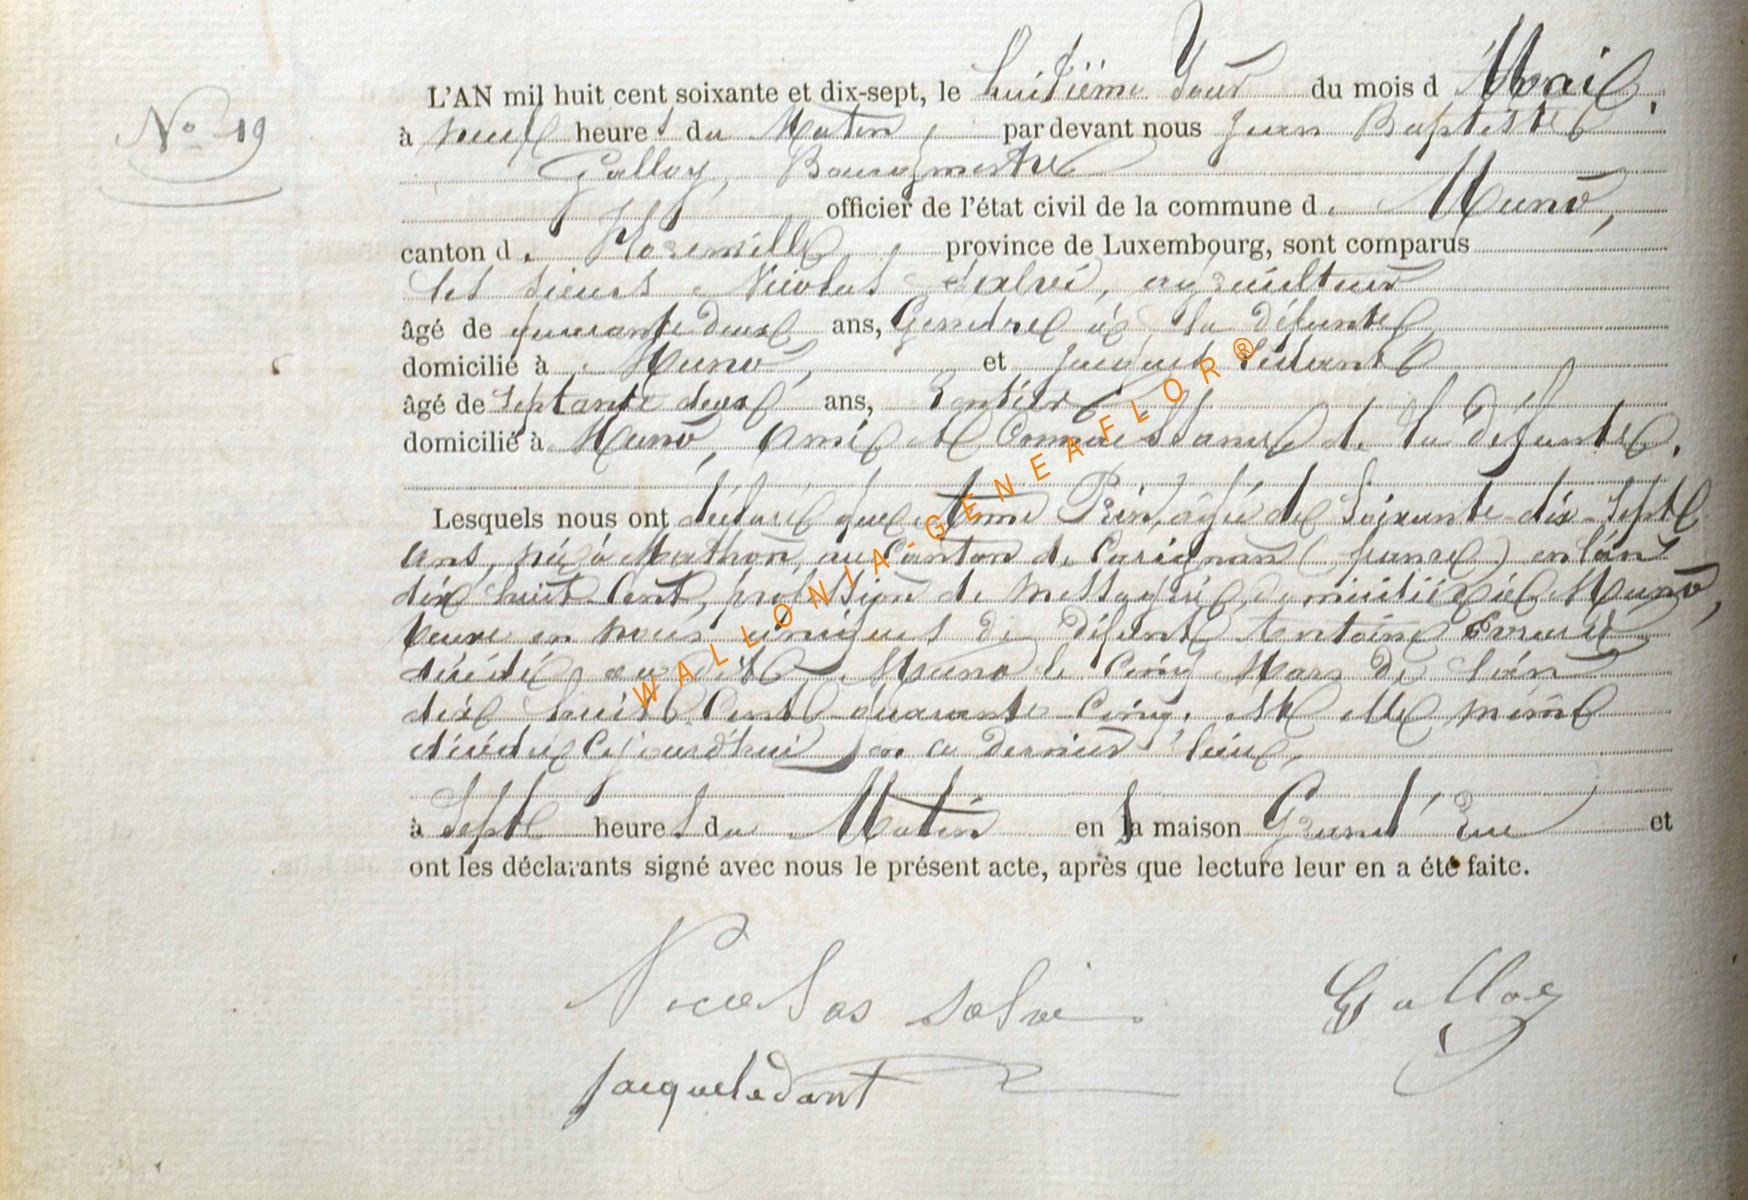 No 19
L'AN mil huit cent soixante et dix-sept, le huitième Jour du mois d Mai,
à neuf heures du Matin, par devant nous Jean Baptiste
Galloy, Bourgmestre
officier de l'état civil de la commune d. Muno,
canton d. Florenville, province de Luxembourg, sont comparus
les sieurs Nicolas Salvé, agriculteur
âgé de quarante deux ans, Gendre à la défunte,
domicilié à Muno, et Jacques Ledant
âgé de septante deux ans, Rentier
domicilié à Muno, ami et Connaissance de la défunte.
Lesquels nous ont déclaré que Anne Prin, âgée de Soixante-dix-Sept
ans, née à Mathon, au Canton de Carignan (france) en l'an
dix huit Cent, profession de Messagère, domiciliée à Muno,
Veuve en noces uniques de défunt Antoine
décédé au dit Muno le Cinq Mars de l'an
dix huit Cent quarante Cinq. Et elle même
décédée Cejourd'hui en ce dernier lieu,
à Sept heures du Matin en la maison Grand' Rue et
ont les déclarants signé avec nous le présent acte, après que lecture leur en a été faite.
Nicolas salvé Galloy
Jacque ledant
WALLONIA-GENEAFLOR®